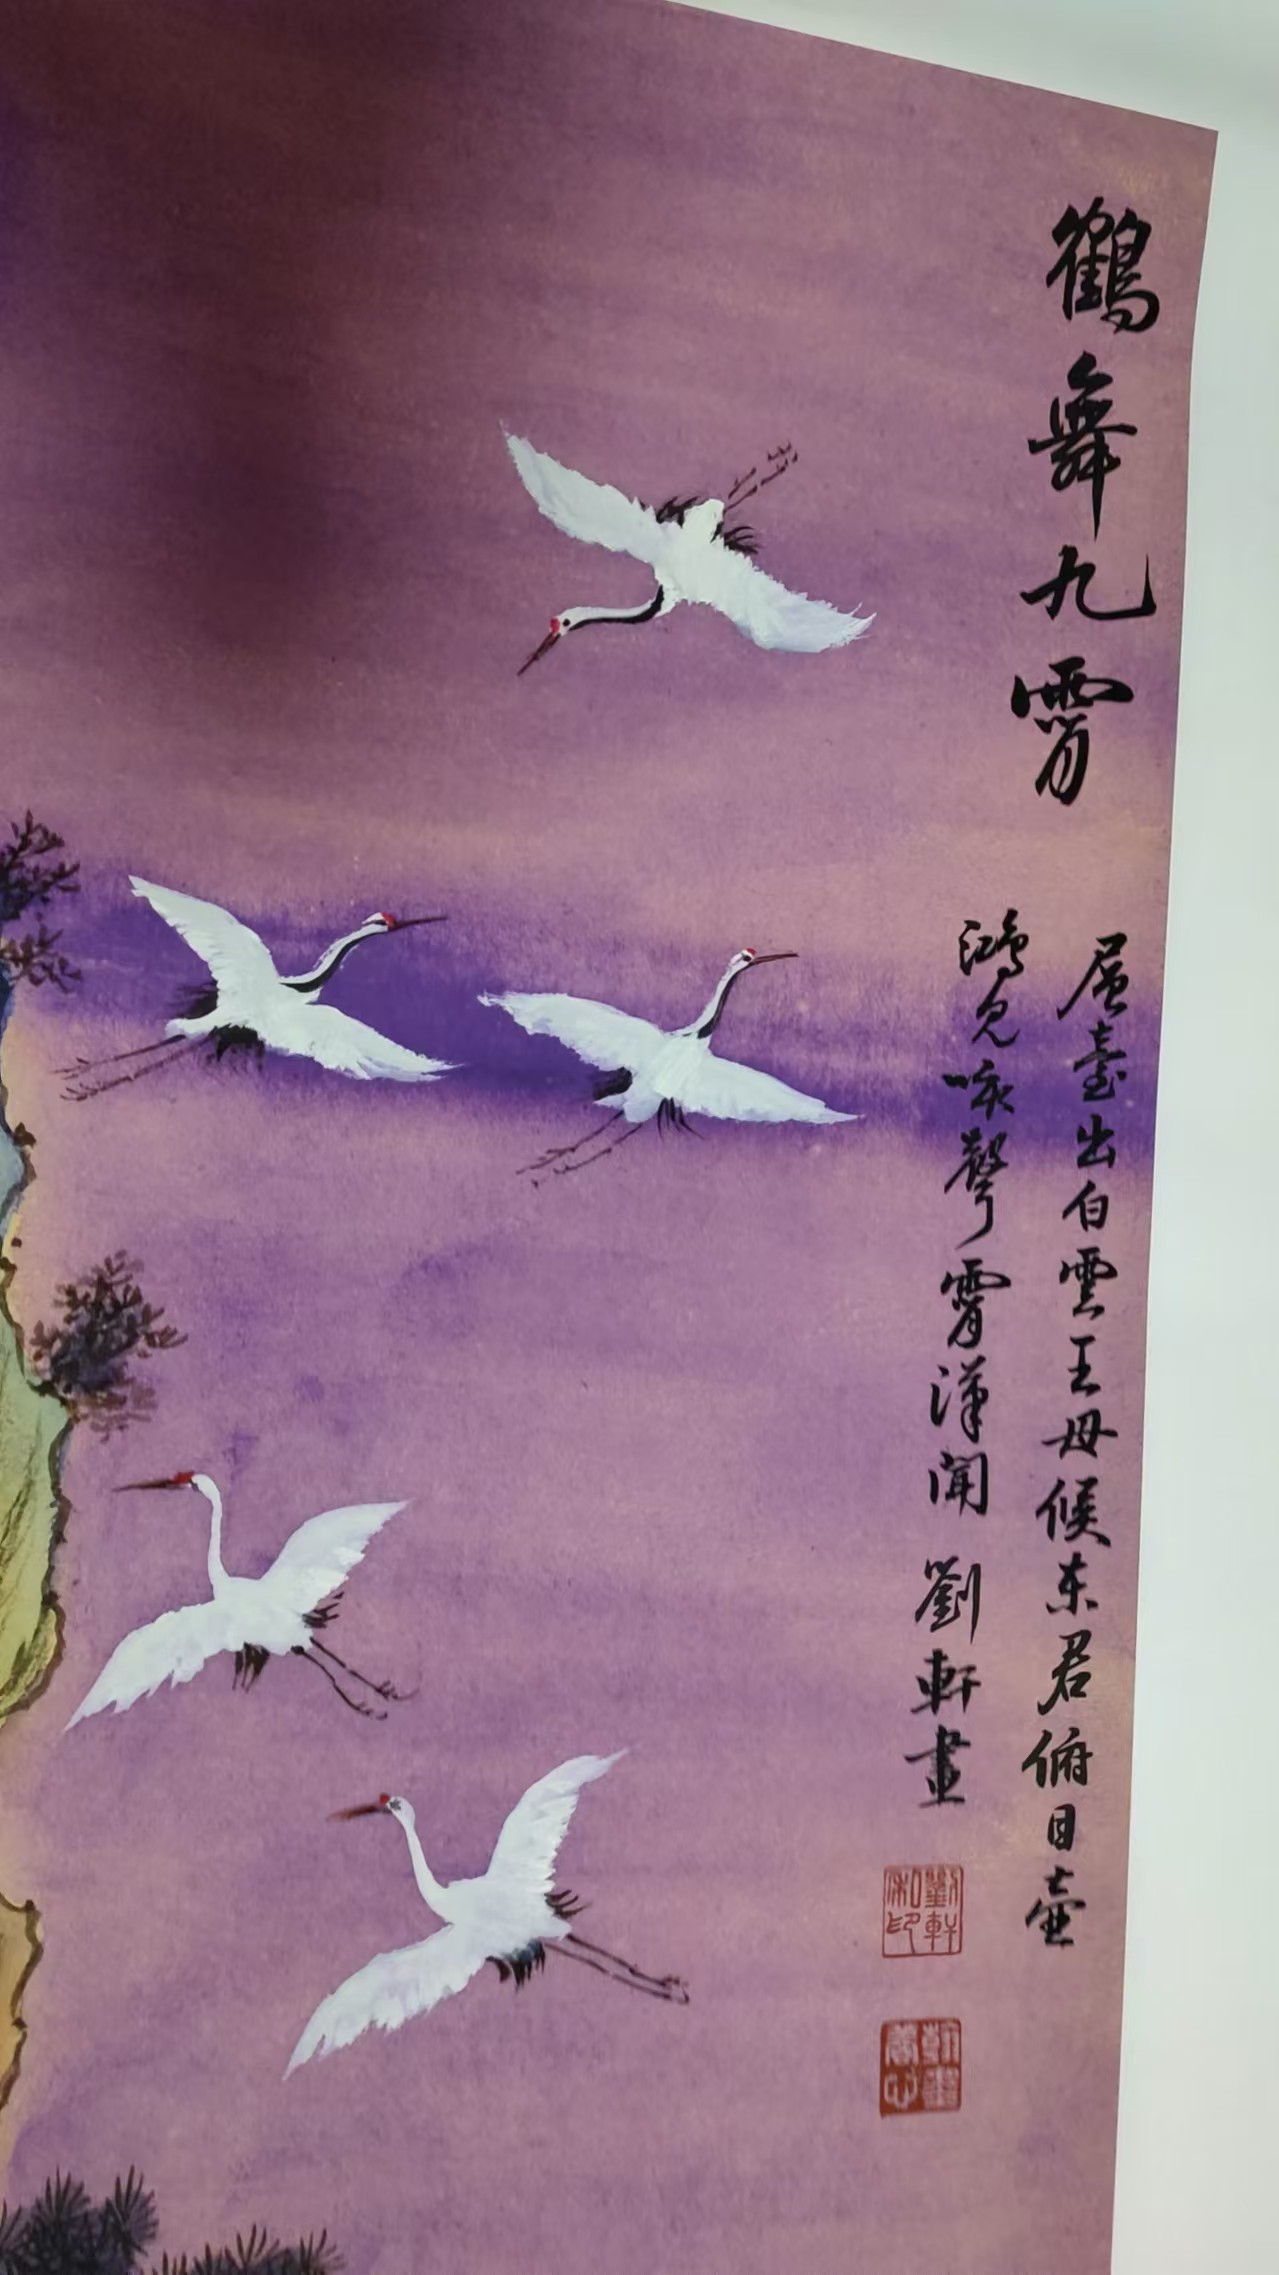 鶴舞九霄
層臺出白雲王母候东君俯目壶
鴻見唳聲霄漢聞 劉軒畫
劉軒私印